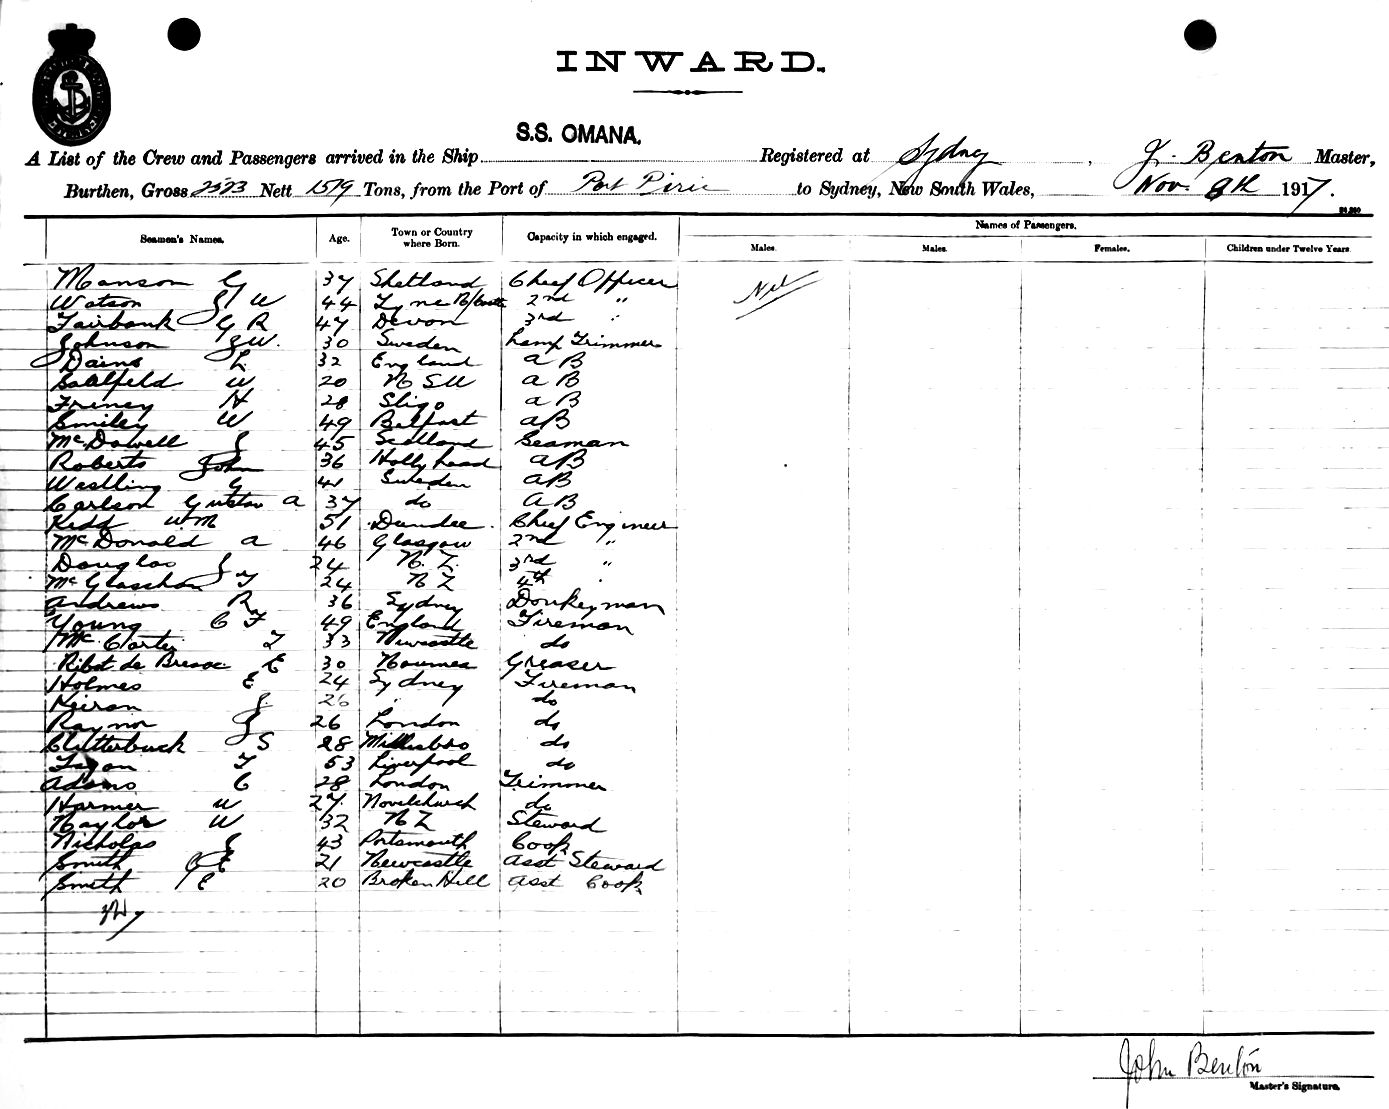 INWARD.
S.S. OMANA.
A List of the Crew and Passengers arrived in the Ship Registered at Sydney, J. Benton Master,
Burthen, Gross 2573 Nett 1519 Tons, from the Port of Port Pirie to Sydney, New South Wales, Nov. 8th 1917.
Seamen's Names. Age. Town or Country where Born. Capacity in which engaged. Names of Passengers.
Males. Males. Females. Children under Twelve Years.
Manson G 37 Shetland Chief Officer Nil
Watson J W 44 Tyne 2nd "
Fairbank G R 47 Devon 3rd "
Johnson J W. 30 Sweden Lamp Trimmer
Dains L 32 England a B
Saalfeld W 20 N S W a B
Freney H 28 Sligo a B
Smiley W 49 Belfast a B
McDowell J 45 Scotland Seaman
Roberts John 36 Hollyhead a B
Westling G 41 Sweden a B
Carlson Gustav a 37 do A B
Kidd Wm 51 Dundee. Chief Engineer
McDonald a 46 Glasgow 2nd "
Douglas J 24 N. Z. 3rd "
McGlashan T 24 N Z 4th "
Andrews R 36 Sydney Donkeyman
Young C F 49 England Fireman
McCarter T 33 Newcastle do
Ribot de E 30 Noumea Greaser
Holmes E 24 Sydney Fireman
Keiran J. 26 " do
Raynor J 26 London do
Clutterbuck S 28 do
Fagan T 53 Liverpool do
Adams C 28 London Trimmer
Harmer W 27. do
Naylor W 32 N Z Steward
Nicholas J 43 Portsmouth Cook
Smith E 21 Newcastle Asst Steward
Smith E 20 Broken Hill Asst Cook
John Benton
Master's Signature.